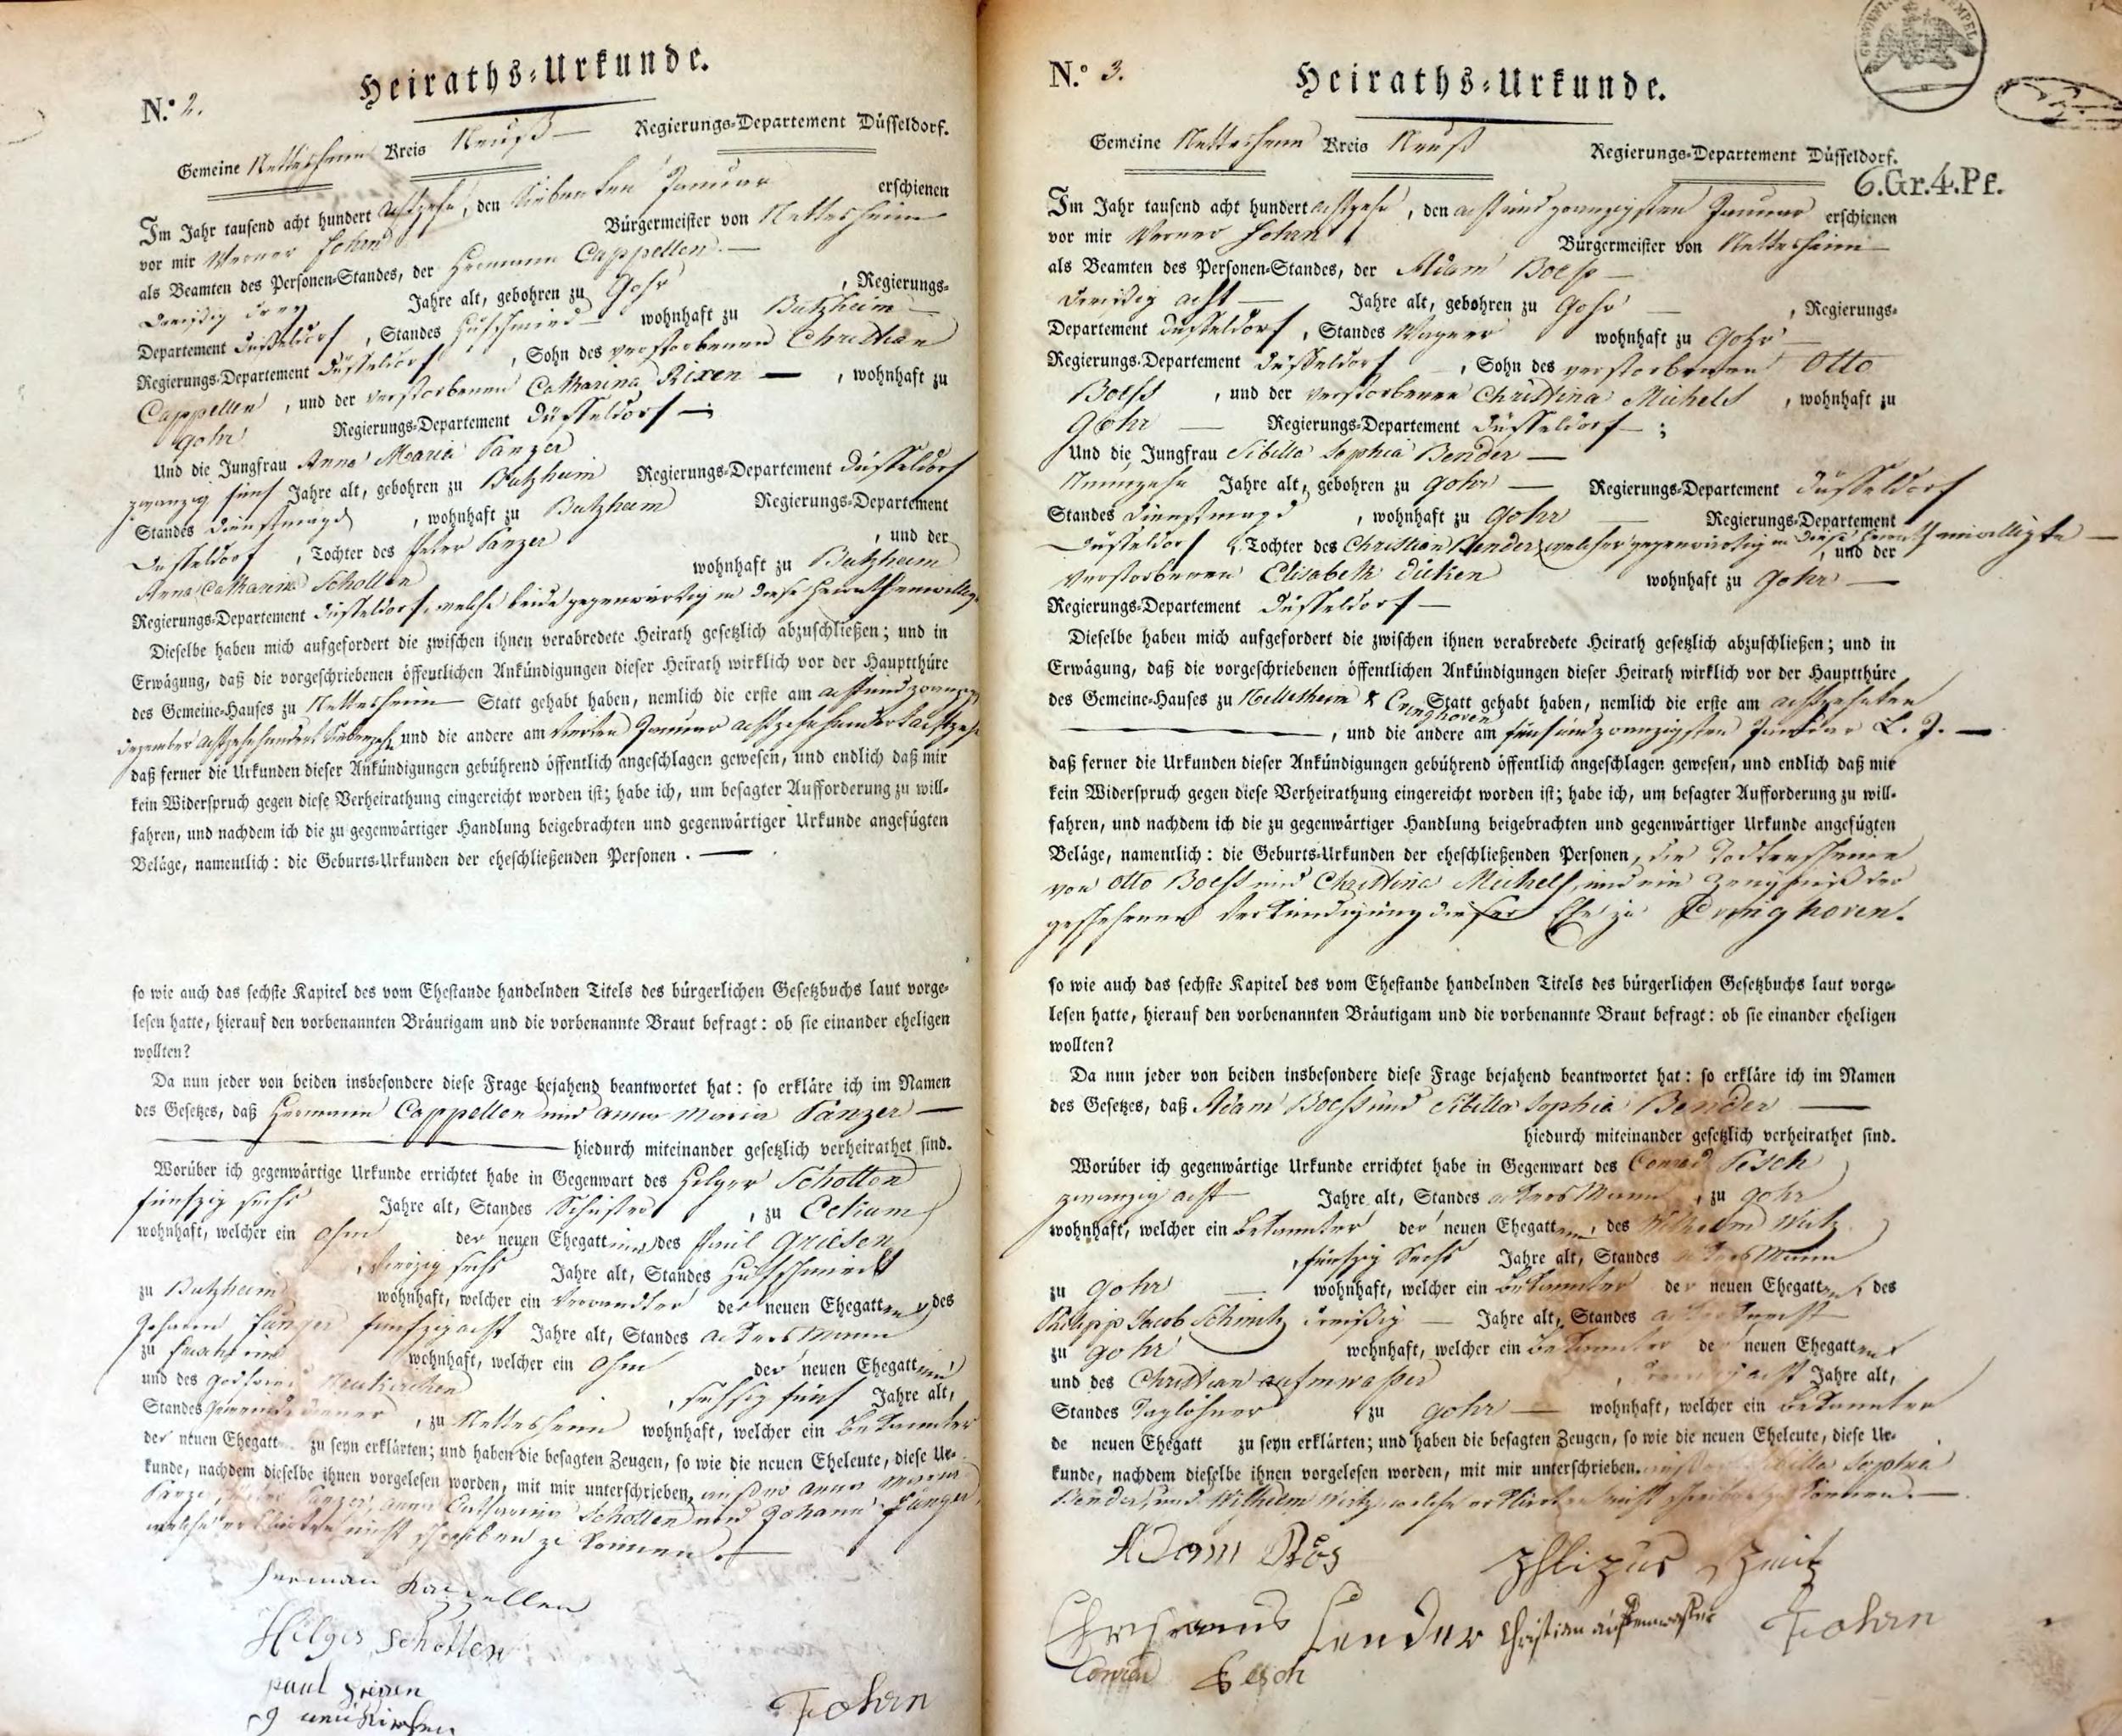 Heiraths-Urkunde.
N.º 2.
Gemeine Nettesheim Kreis Neuß — Regierungs-Departement Düsseldorf.
Im Jahr tausend acht hundert achtzehn, den siebenten Januar erschienen
vor mir Werner John Bürgermeister von Nettesheim
als Beamten des Personen-Standes, der Hermann Cappellen —
dreißig drey Jahre alt, gebohren zu Gohr, Regierungs-
Departement Düsseldorf, Standes Hufschmied wohnhaft zu Butzheim —
Regierungs-Departement Düsseldorf, Sohn des verstorbenen Christian
Cappellen, und der verstorbenen Catharina Rixen —, wohnhaft zu
Gohr Regierungs-Departement Düsseldorf —;
Und die Jungfrau Anna Maria Panzer
zwanzig fünf Jahre alt, gebohren zu Butzheim Regierungs-Departement Düsseldorf
Standes Dienstmagd, wohnhaft zu Butzheim Regierungs-Departement
Düsseldorf, Tochter des Peter Panzer, und der
Anna Catharina Schotten wohnhaft zu Butzheim
Regierungs-Departement Düsseldorf, welche beide gegenwärtig in diese Heirath
Dieselbe haben mich aufgefordert die zwischen ihnen verabredete Heirath gesetzlich abzuschließen; und in
Erwägung, daß die vorgeschriebenen öffentlichen Ankündigungen dieser Heirath wirklich vor der Hauptthüre
des Gemeine-Hauses zu Nettesheim — Statt gehabt haben, nemlich die erste am achtundzwanzig
Dezember achtzehnhundert siebenzehn und die andere am vierten Januar achtzehnhundert achtzehn
daß ferner die Urkunden dieser Ankündigungen gebührend öffentlich angeschlagen gewesen, und endlich daß mir
kein Widerspruch gegen diese Verheirathung eingereicht worden ist; habe ich, um besagter Aufforderung zu will-
fahren, und nachdem ich die zu gegenwärtiger Handlung beigebrachten und gegenwärtiger Urkunde angefügten
Beläge, namentlich: die Geburts-Urkunden der eheschließenden Personen. —
so wie auch das sechste Kapitel des vom Ehestande handelnden Titels des bürgerlichen Gesetzbuchs laut vorge-
lesen hatte, hierauf den vorbenannten Bräutigam und die vorbenannte Braut befragt: ob sie einander eheligen
wollten?
Da nun jeder von beiden insbesondere diese Frage bejahend beantwortet hat: so erkläre ich im Namen
des Gesetzes, daß Hermann Cappellen und Anna Maria Panzer —
— hiedurch miteinander gesetzlich verheirathet sind.
Worüber ich gegenwärtige Urkunde errichtet habe in Gegenwart des Hilger Schotten
fünfzig sechs Jahre alt, Standes Schuster, zu Eckum
wohnhaft, welcher ein Ohm der neuen Ehegattinn, des Paul Griesen
, vierzig sechs Jahre alt, Standes Hufschmied
zu Butzheim wohnhaft, welcher ein Verwandter der neuen Ehegatten, des
Johann fünfzig acht Jahre alt, Standes Ackersmann
zu wohnhaft, welcher ein Ohm der neuen Ehegattinn
und des Godfried Neukirchen, sechszig fünf Jahre alt,
Standes Gemeindediener, zu Nettesheim wohnhaft, welcher ein Bekannter
der neuen Ehegatt zu seyn erklärten; und haben die besagten Zeugen, so wie die neuen Eheleute, diese Ur-
kunde, nachdem dieselbe ihnen vorgelesen worden, mit mir unterschrieben, außer Anna Maria
Panzer, Peter Panzer, Anna Catharina Schotten und Johann
welche erklärten nicht schreiben zu können. —
Herman Kappellen
Hilger Schotten
paul griesen
g neukirchen
John
N.º 3.
Heiraths-Urkunde.
Gemeine Nettesheim Kreis Neuß Regierungs-Departement Düsseldorf.
6.Gr.4.Pf.
Im Jahr tausend acht hundert achtzehn, den achtundzwanzigsten Januar erschienen
vor mir Werner John Bürgermeister von Nettesheim —
als Beamten des Personen-Standes, der Adam Boess —
dreißig acht — Jahre alt, gebohren zu Gohr —, Regierungs-
Departement Düsseldorf, Standes Wagner wohnhaft zu Gohr —
Regierungs-Departement Düsseldorf —, Sohn des verstorbenen Otto
Boess, und der verstorbenen Christina Michels, wohnhaft zu
Gohr — Regierungs-Departement Düsseldorf —;
Und die Jungfrau Sibilla Sophia Bender —
Neunzehn Jahre alt, gebohren zu Gohr — Regierungs-Departement Düsseldorf
Standes Dienstmagd, wohnhaft zu Gohr — Regierungs-Departement
Düsseldorf, Tochter des Christian Bender, welcher gegenwärtig in diese Heirath einwilligte —, und der
verstorbenen Elisabeth Dücken wohnhaft zu Gohr —
Regierungs-Departement Düsseldorf —
Dieselbe haben mich aufgefordert die zwischen ihnen verabredete Heirath gesetzlich abzuschließen; und in
Erwägung, daß die vorgeschriebenen öffentlichen Ankündigungen dieser Heirath wirklich vor der Hauptthüre
des Gemeine-Hauses zu Nettesheim & Evinghoven Statt gehabt haben, nemlich die erste am achtzehnten
—, und die andere am fünfundzwanzigsten Januar L. J. —
daß ferner die Urkunden dieser Ankündigungen gebührend öffentlich angeschlagen gewesen, und endlich daß mir
kein Widerspruch gegen diese Verheirathung eingereicht worden ist; habe ich, um besagter Aufforderung zu will-
fahren, und nachdem ich die zu gegenwärtiger Handlung beigebrachten und gegenwärtiger Urkunde angefügten
Beläge, namentlich: die Geburts-Urkunden der eheschließenden Personen, die Todtenscheine
von Otto Boess und Christina Michels, und ein Zeugniß der
geschehenen Verkündigung dieser Ehe zu Evinghoven.
so wie auch das sechste Kapitel des vom Ehestande handelnden Titels des bürgerlichen Gesetzbuchs laut vorge-
lesen hatte, hierauf den vorbenannten Bräutigam und die vorbenannte Braut befragt: ob sie einander eheligen
wollten?
Da nun jeder von beiden insbesondere diese Frage bejahend beantwortet hat: so erkläre ich im Namen
des Gesetzes, daß Adam Boess und Sibilla Sophia Bender —
hiedurch miteinander gesetzlich verheirathet sind.
Worüber ich gegenwärtige Urkunde errichtet habe in Gegenwart des Conrad Pesch
zwanzig acht — Jahre alt, Standes Ackersmann, zu Gohr
wohnhaft, welcher ein Bekannter der neuen Ehegatten, des Wilhelm Wirtz
, fünfzig sechs Jahre alt, Standes Ackersmann
zu Gohr — wohnhaft, welcher ein Bekannter der neuen Ehegatten, des
Philipp Jacob Schmitz dreißig — Jahre alt, Standes Ackerknecht —
zu Gohr wohnhaft, welcher ein Bekannter der neuen Ehegatten
und des Christian aufmwasser, acht Jahre alt,
Standes Taglöhner, zu Gohr — wohnhaft, welcher ein Bekannter
de neuen Ehegatt zu seyn erklärten; und haben die besagten Zeugen, so wie die neuen Eheleute, diese Ur-
kunde, nachdem dieselbe ihnen vorgelesen worden, mit mir unterschrieben. außer Sibilla Sophia
Bender, und Wilhelm Wirtz welche erklärten nicht schreiben zu können. —
Adam Bös
Schmitz
Bender Christian aufemwasser John
Conrad Pesch